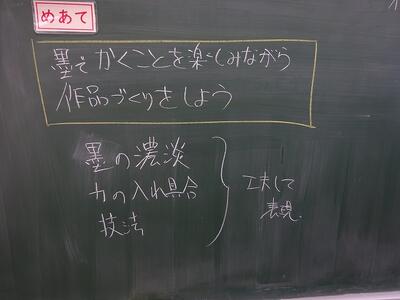 めあて
墨でかくことを楽しみながら
作品づくりをしよう
墨の濃淡
力の入れ具合
技法
工夫して
表現